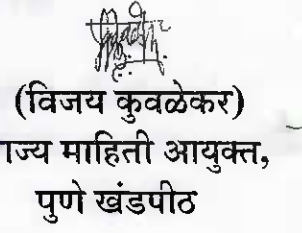 (विजय कुवळेकर)
ाज्य माहिती आयुक्त,
पुणे खंडपीठ